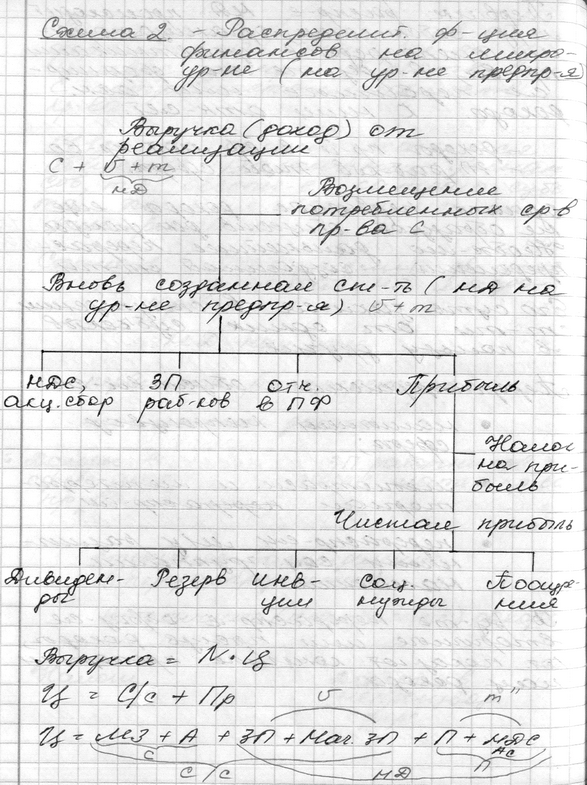 Схема 2 - Распределит. ф-ция
финансов на микро-
ур-не (на ур-не предпр-я)
Выручка (доход) от
реализации
C + v + m
НД
Возмещение
потребленных ср-в
пр-ва C
Вновь созданная ст-ть (НД на
ур-не предпр-я) v + m
НДС,
акц. сбор
ЗП
раб-ков
отч.
в ПФ
Прибыль
Налог
на при-
быль
Чистая прибыль
Дивиден-
ды
Резерв
инв-
ции
Соц.
нужды
Поощре-
ния
Выручка = N · Ц
Ц = С/с + Пр
v
m"
Ц = МЗ + А + ЗП + Нач. ЗП + П + НДС
АС
C
П
С/с
НД